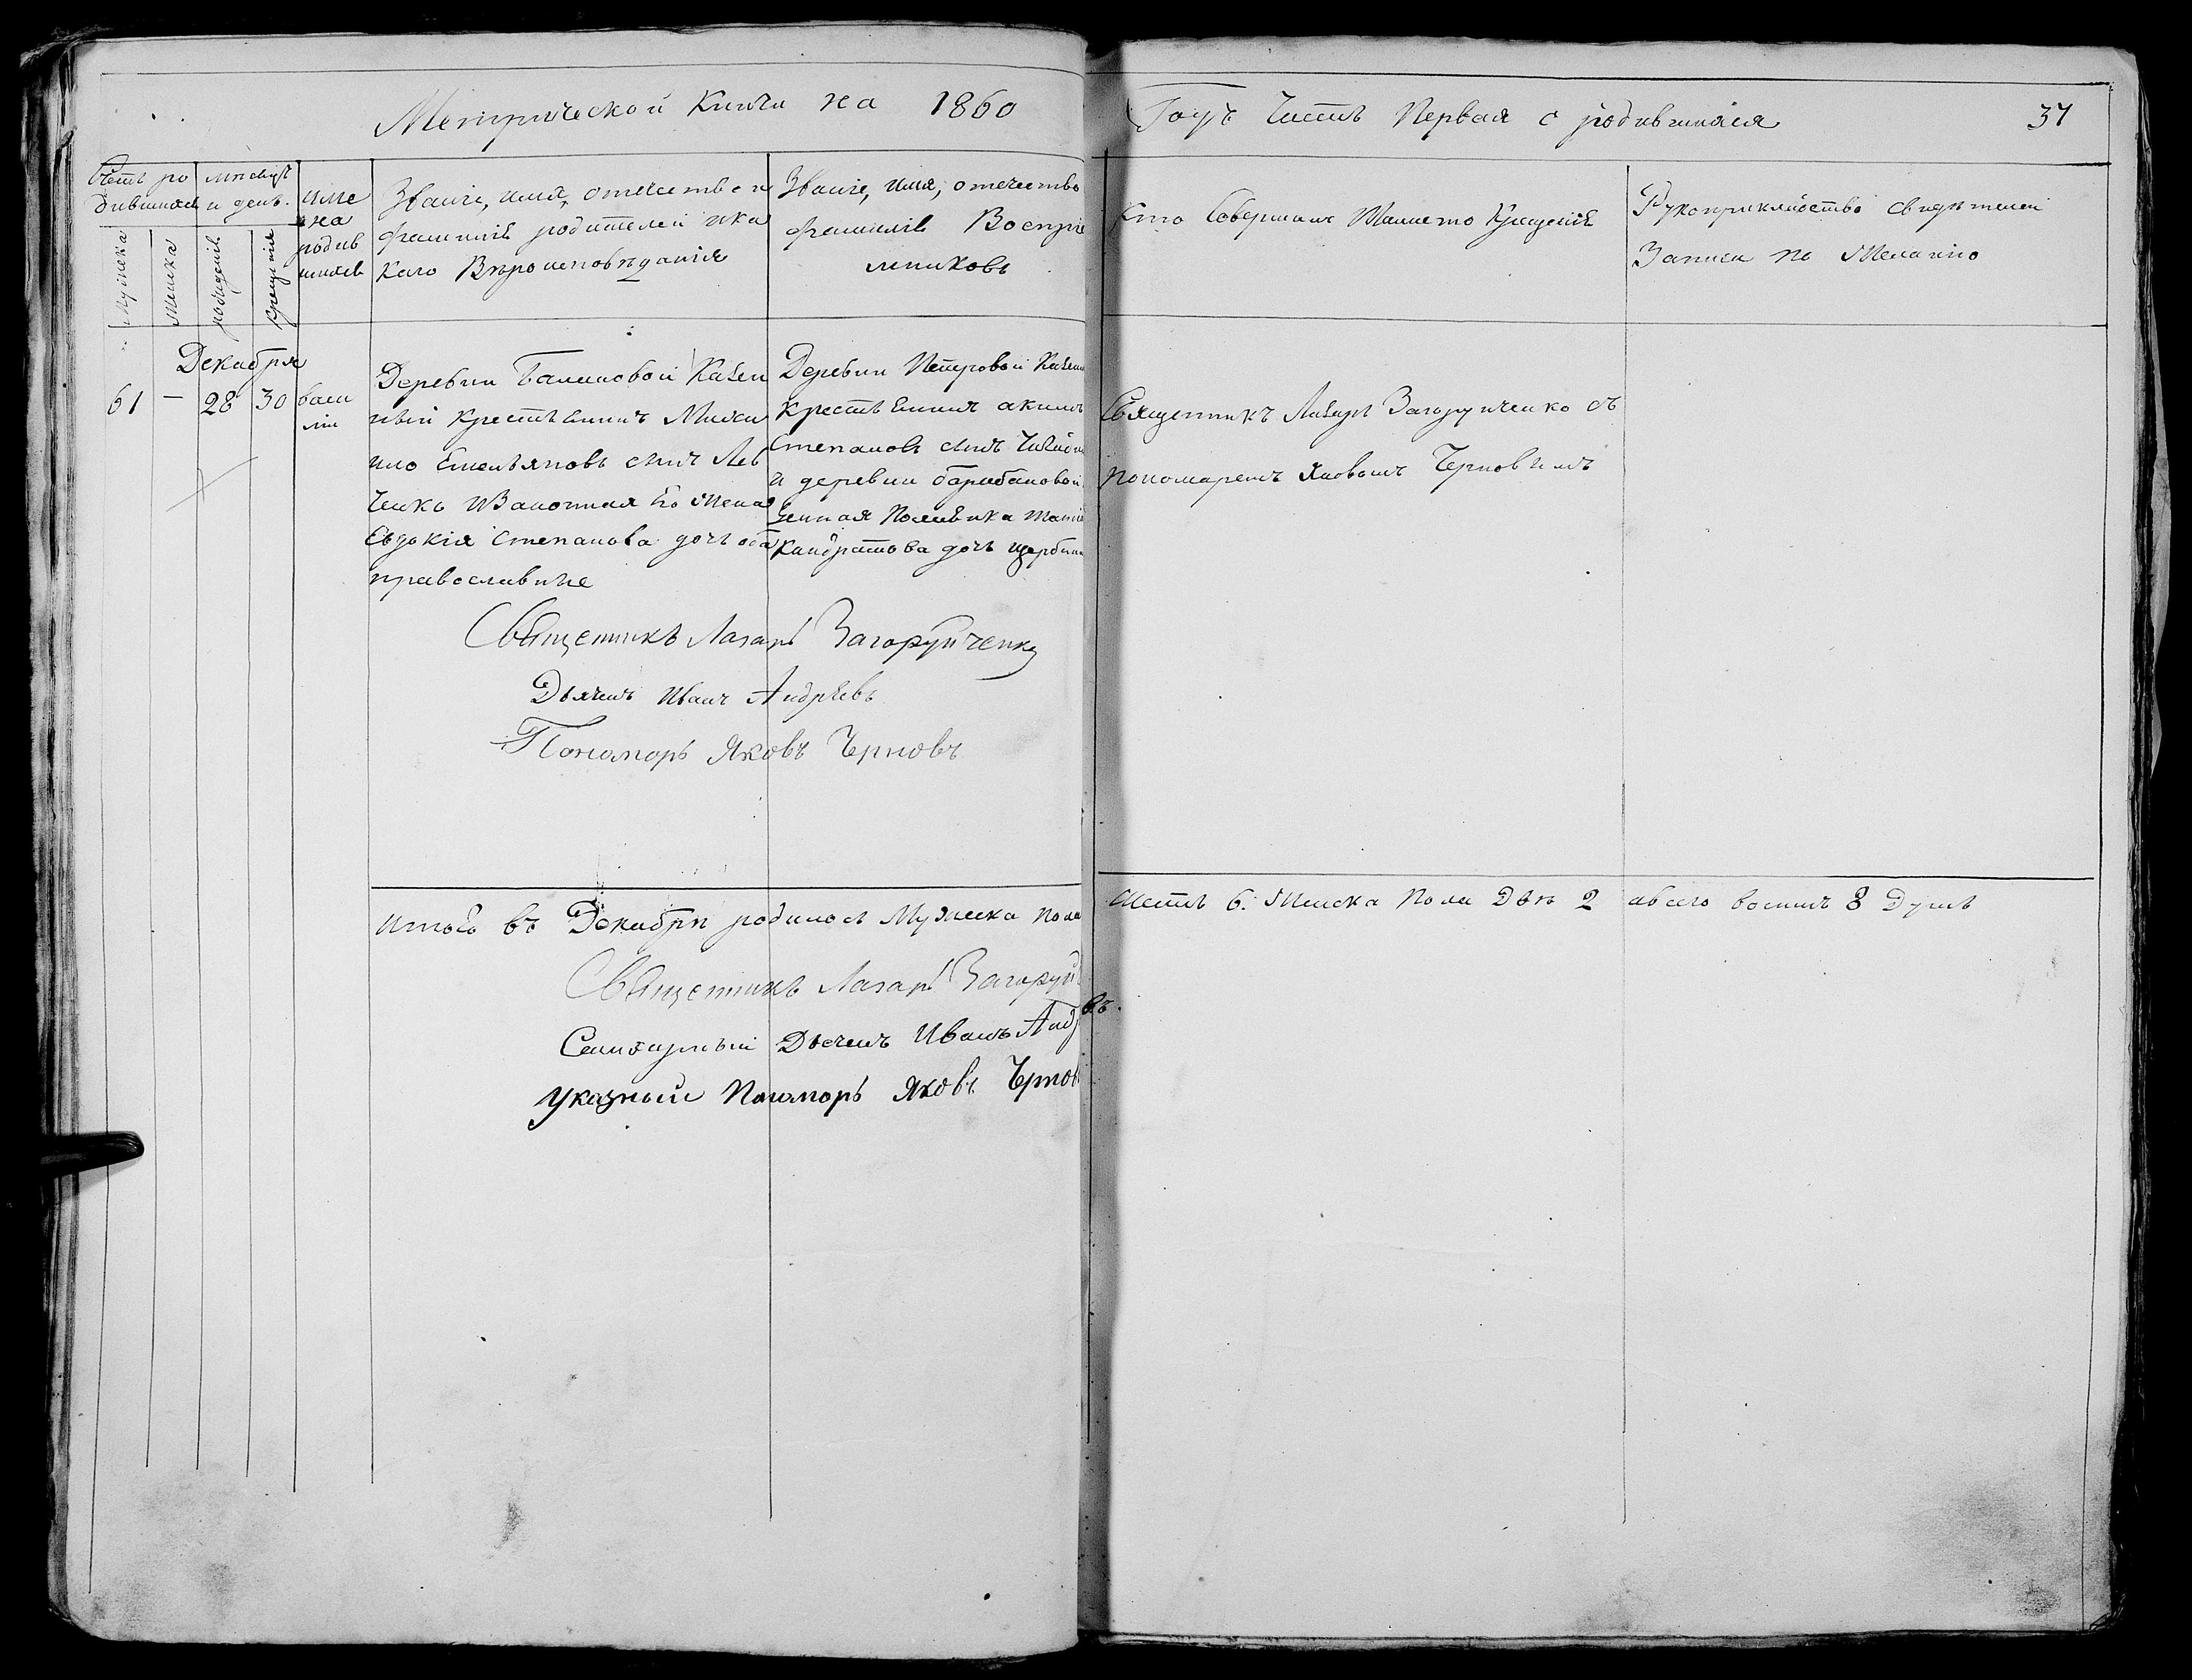 Метрической Книги на 1860
Годъ Часть Первая о родившихся
37
Счетъ ро
дившихся
мѣсяцъ
и день.
Мужеска
Женска
рожденія
Крещенія
име
на
родив
шихся
Званіе, имя, отечество и
фамилія родителей и ка
каго Вѣроисповѣданія
Званіе, имя, отечество
фамилія Воспріе
мниковъ
Кто Совершилъ Таинство Крещенія
Рукоприкладство свидѣтелей
Записи по Желанію
Декабря
61 — 28 30
Васи
лій
Деревни Казен
ный крестьянинъ Михаи
ило Емельяновъ сынъ Лев
ченко и Законная Его Жена
Евдокія Степанова дочь оба
православные
Деревни Петровой Казенн
крестьянинъ акимъ
Степановъ сынъ
и деревни барабановой
Кандратова дочь щербин
Священникъ Лазарь Загоруйченко съ
пономаремъ Яковомъ Черновымъ
Священникъ Лазарь Загоруйченко
Дьячекъ Иванъ Андрѣевъ
Пономарь Яковъ Черновъ
Итого въ Декабрѣ родилось Мужеска пола
шесть 6. Женска Пола Двѣ 2 а всего восемь 8 Душъ
Священникъ Лазарь Загоруй
Дьячекъ Иванъ Андр
въ.
Указный Пономарь Яковъ Чернов